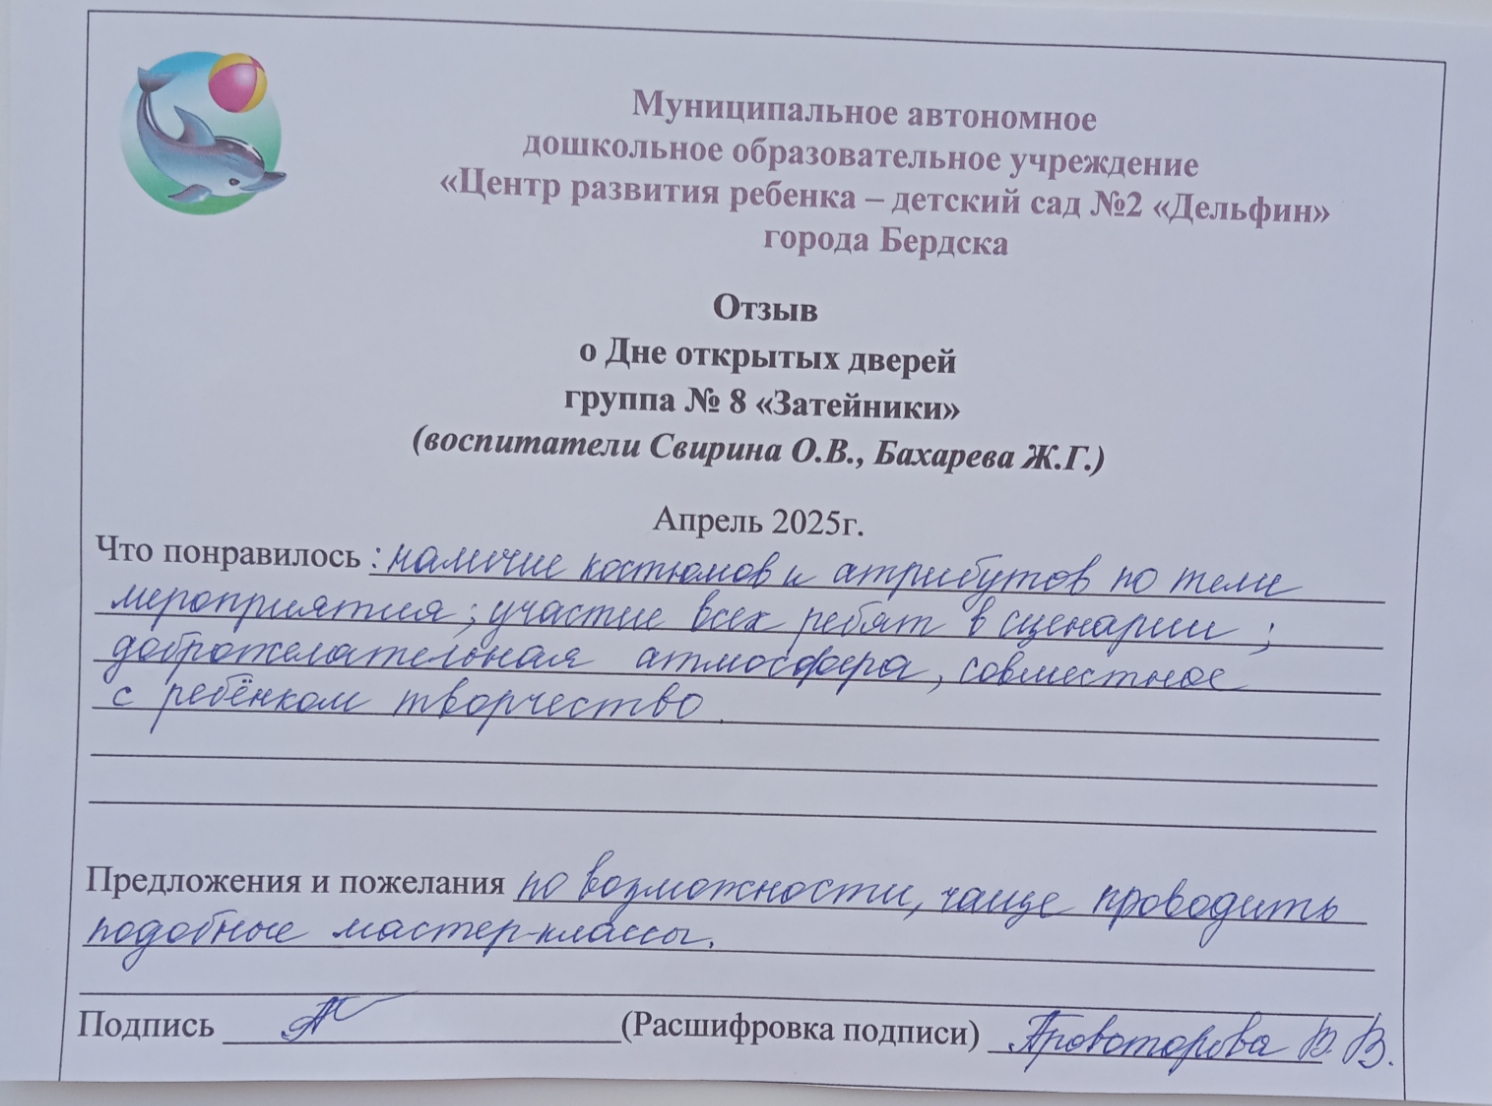 Муниципальное автономное
дошкольное образовательное учреждение
«Центр развития ребенка – детский сад №2 «Дельфин»
города Бердска
Отзыв
о Дне открытых дверей
группа № 8 «Затейники»
(воспитатели Свирина О.В., Бахарева Ж.Г.)
Апрель 2025г.
Что понравилось : наличие костюмов и атрибутов по теме
мероприятия; участие всех ребят в сценарии;
доброжелательная атмосфера, совместное
с ребёнком творчество.
Предложения и пожелания по возможности, чаще проводить
подобные мастер-классы.
Подпись (Расшифровка подписи) Провоторова В. В.